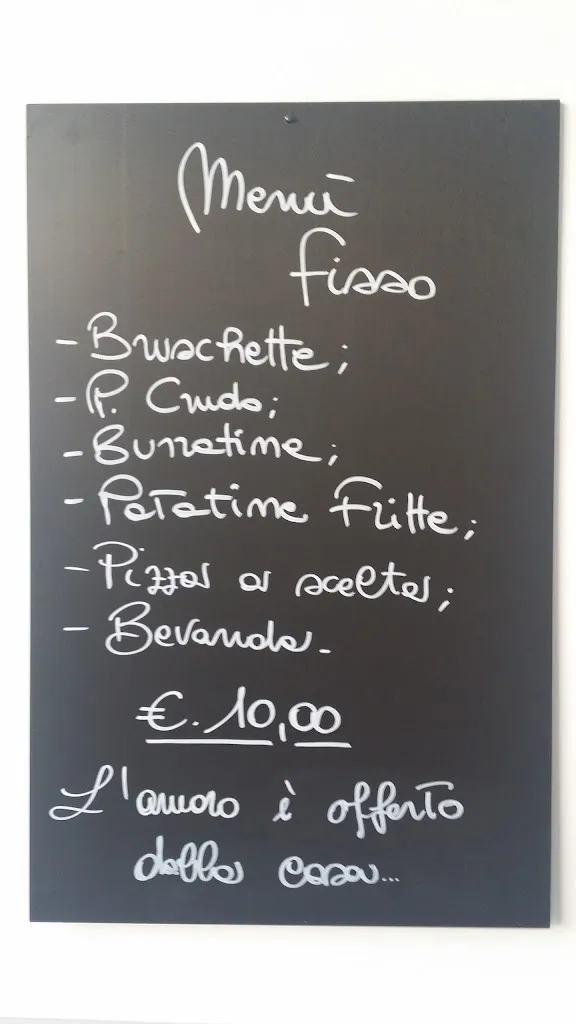 Menù
fisso
- Bruschette;
- P. Crudo;
- Burratine;
- Patatine Fritte;
- Pizza a scelta;
- Bevanda.
€. 10,00
L'amaro è offerto
dalla casa...